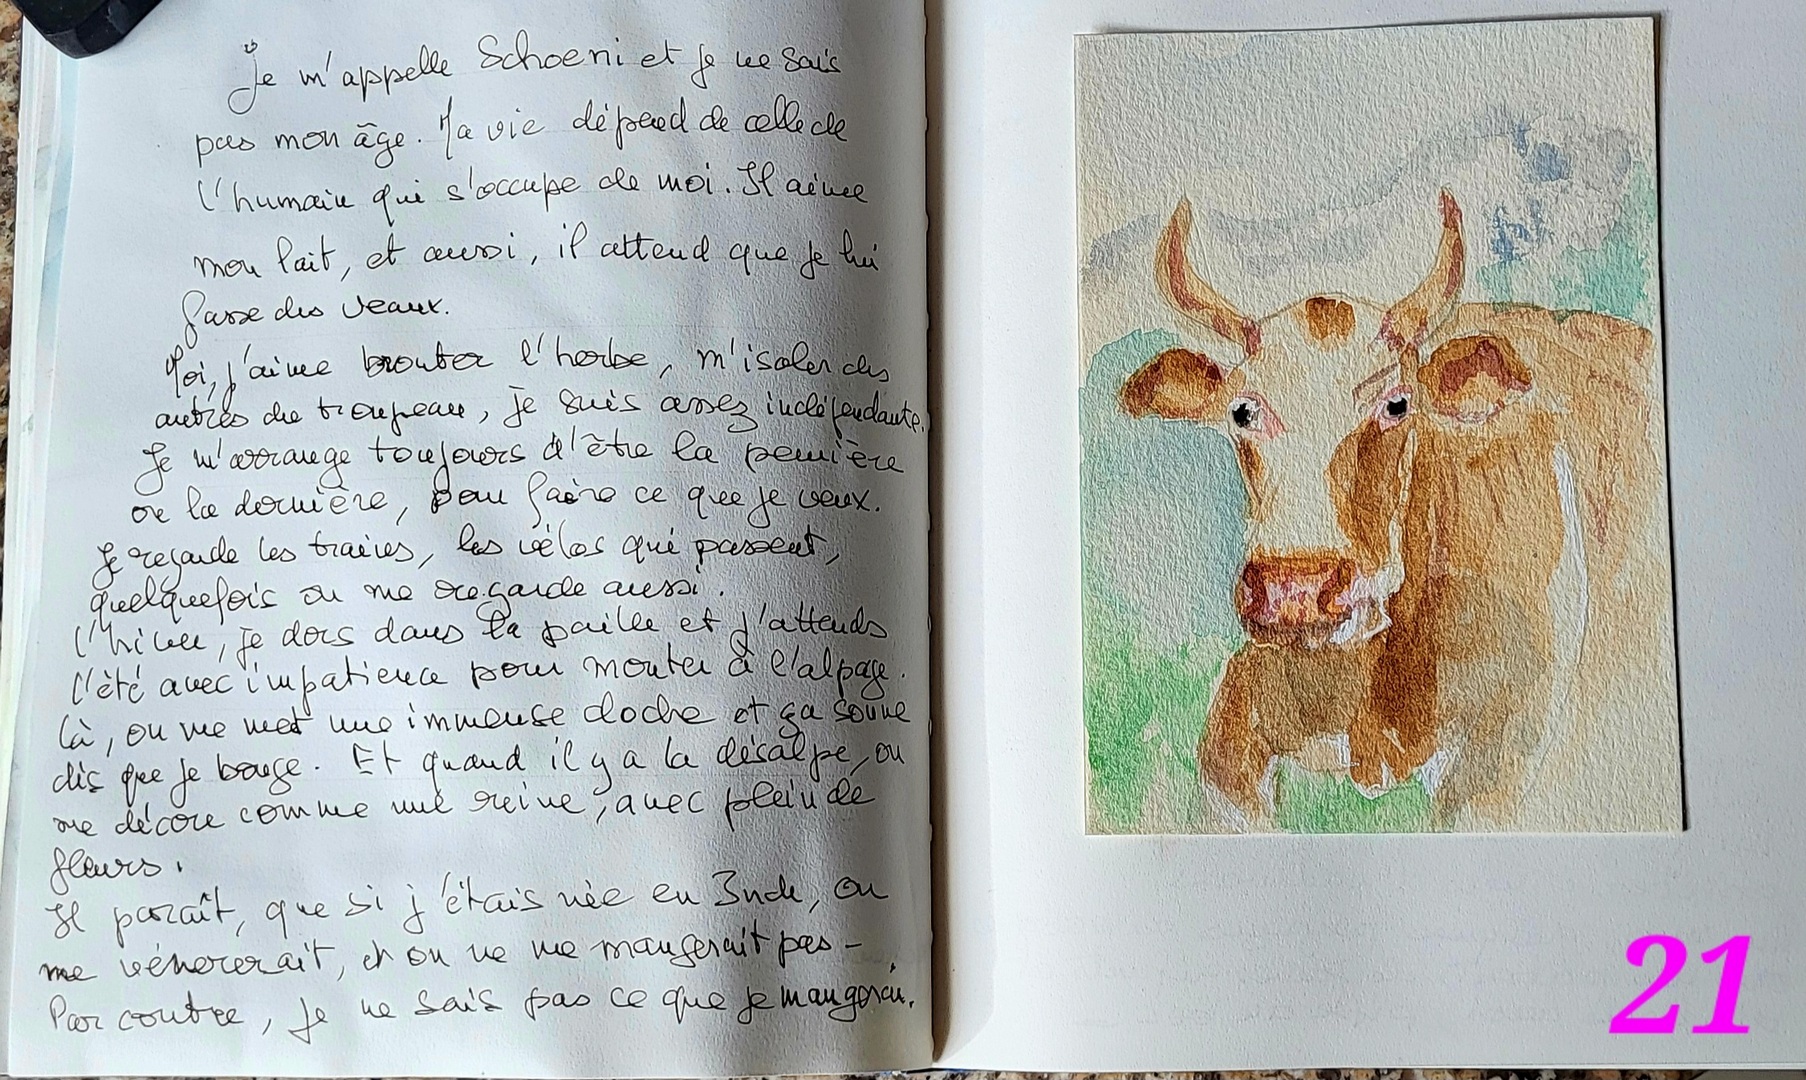 Je m'appelle Schoeni et je ne sais
pas mon âge. Ma vie dépend de celle de
l'humain qui s'occupe de moi. Il aime
mon lait, et aussi, il attend que je lui
fasse des veaux.
Moi, j'aime brouter l'herbe, m'isoler des
autres du troupeau, je suis assez indépendante.
Je m'arrange toujours d'être la première
ou la dernière, pour faire ce que je veux.
Je regarde les trains, les vélos qui passent,
quelquefois on me regarde aussi.
L'hiver, je dors dans la paille et j'attends
l'été avec impatience pour monter à l'alpage.
Là, on me met une immense cloche et ça sonne
dès que je bouge. Et quand il y a la désalpe, on
me décore comme une reine, avec plein de
fleurs.
Il paraît, que si j'étais née en Inde, on
me vénérerait, et on ne me mangerait pas -
Par contre, je ne sais pas ce que je mangerai.
21